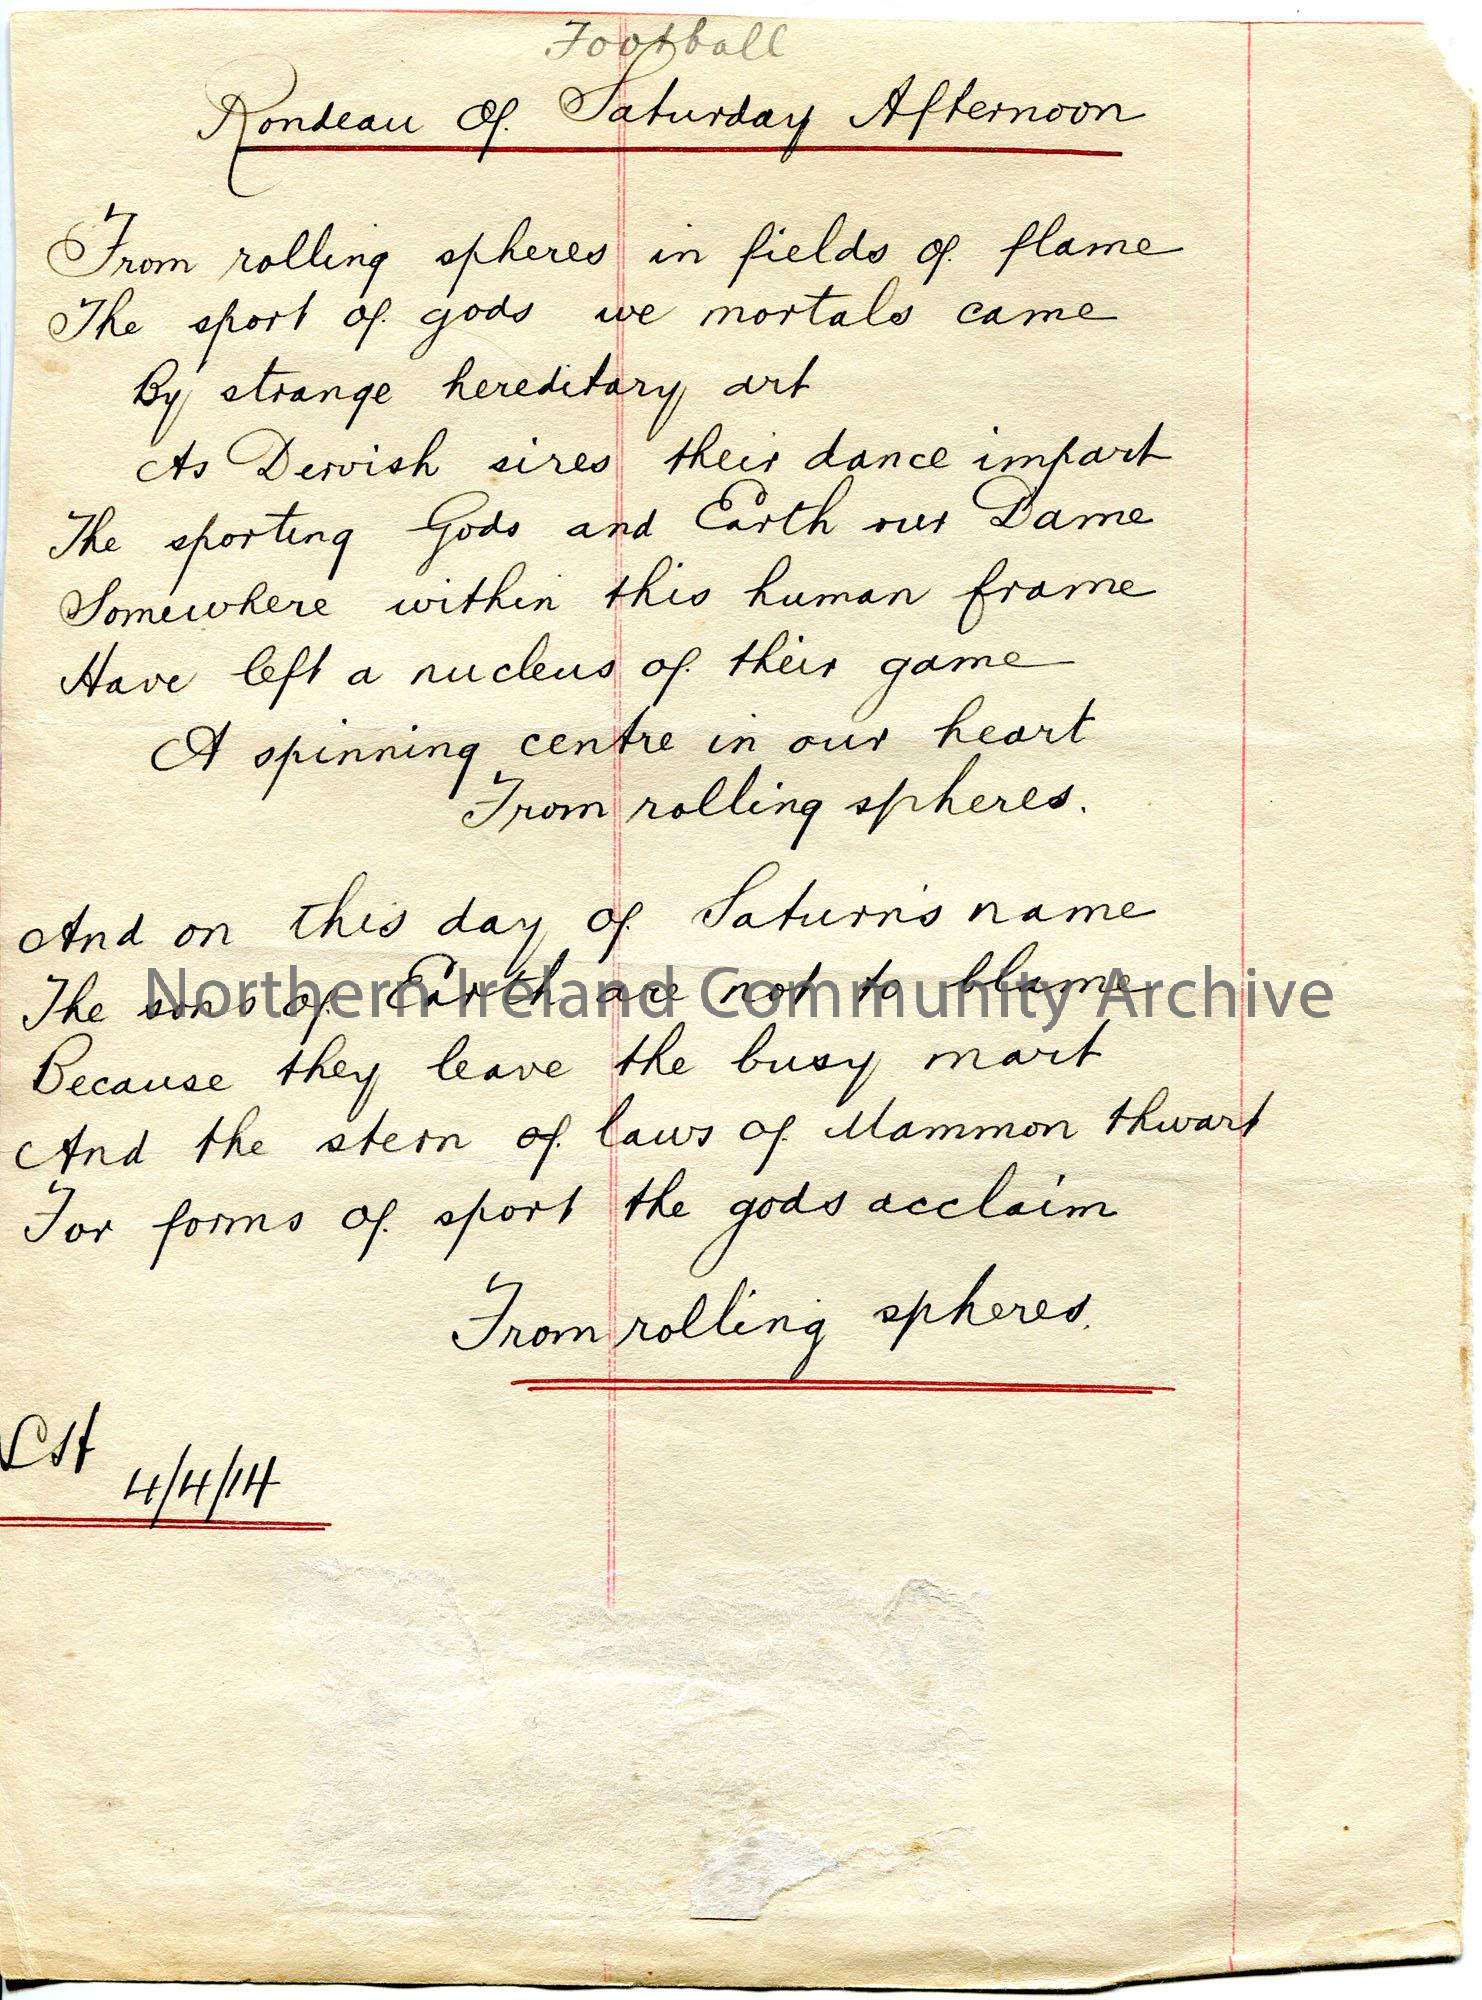 Football
Rondeau of Saturday Afternoon
From rolling spheres in fields of flame
The sport of gods we mortals came
By strange hereditary art
As Dervish sires their dance impart
The sporting Gods and Earth our Dame
Somewhere within this human frame
Have left a nucleus of their game
A spinning centre in our heart
From rolling spheres.
And on this day of Saturn's name
The sons of Earth are not to blame
Northern Ireland Community Archive
Because they leave the busy mart
And the stern of laws of Mammon thwart
For forms of sport the gods acclaim
From rolling spheres.
4/4/14